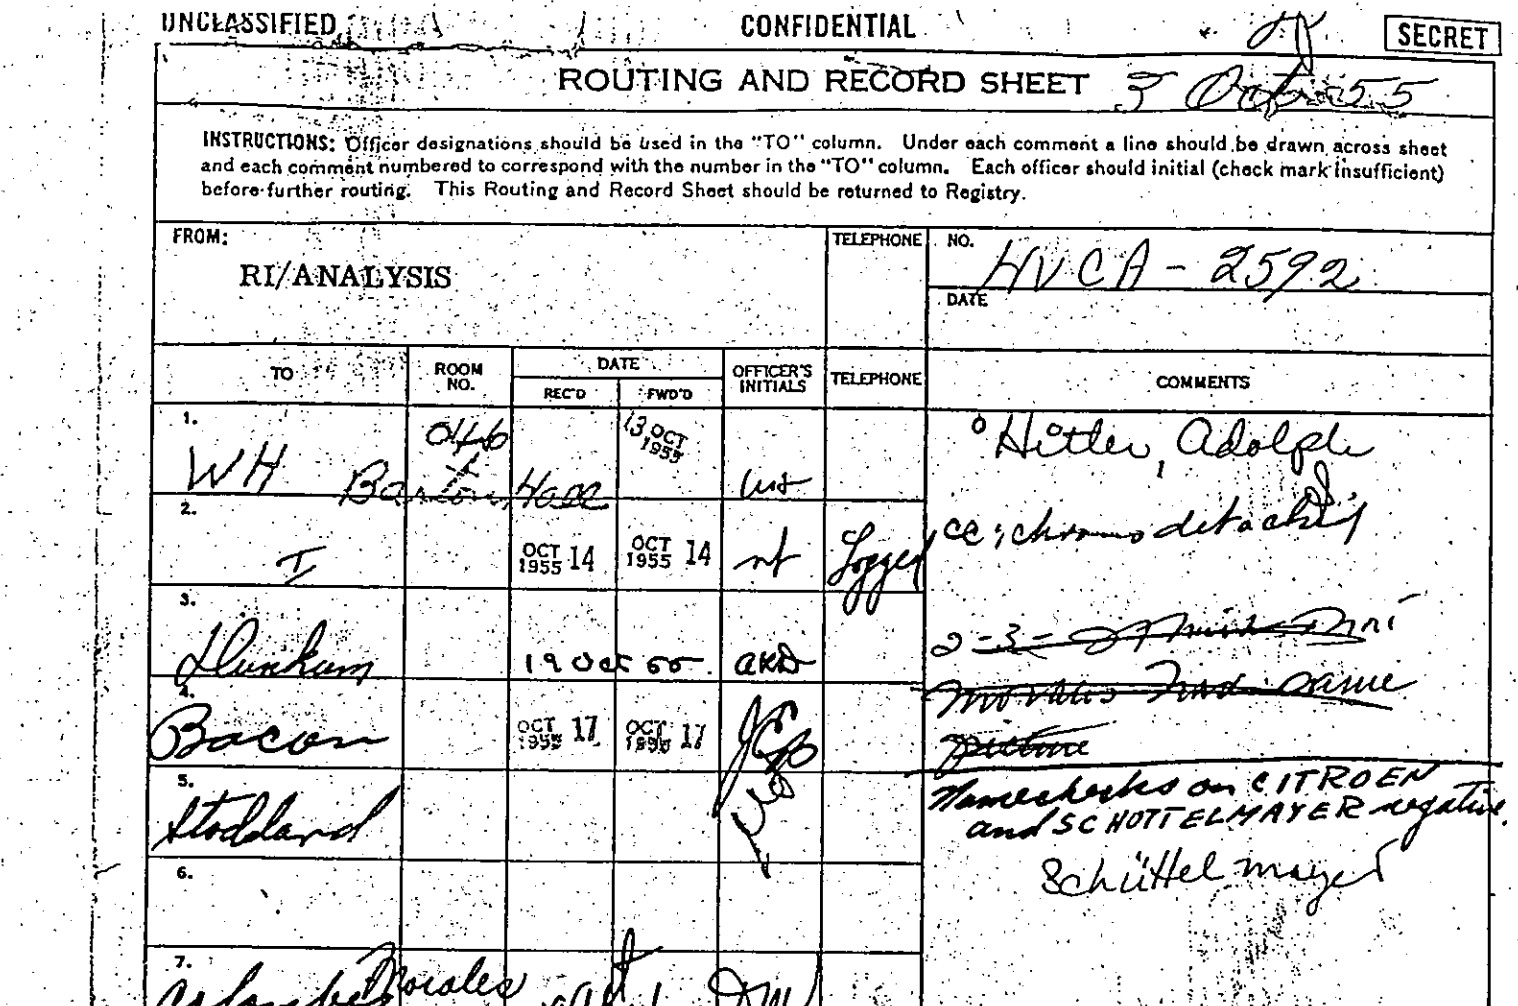 UNCLASSIFIED CONFIDENTIAL SECRET
ROUTING AND RECORD SHEET 3 Oct 55
INSTRUCTIONS: Officer designations should be used in the "TO" column. Under each comment a line should be drawn across sheet
and each comment numbered to correspond with the number in the "TO" column. Each officer should initial (check mark insufficient)
before further routing. This Routing and Record Sheet should be returned to Registry.
FROM:
RI/ANALYSIS
TELEPHONE
NO.
HVCA - 2592
DATE
TO
ROOM NO.
DATE
REC'D
FWD'D
OFFICER'S INITIALS
TELEPHONE
COMMENTS
1.
WH
046
Barton Hall
13 OCT
1955
Hitler, Adolph
2.
I
OCT 14
1955
OCT 14
1955
Logged
cc:
3.
Dunham
19 Oct 55
AKD
2-3-
same
picture
4.
Bacon
OCT 17
1955
OCT 17
1955
JCB
5.
Stoddard
Namechecks on CITROEN
and SCHOTTELMAYER negative.
Schüttelmayer
6.
7.
Morales